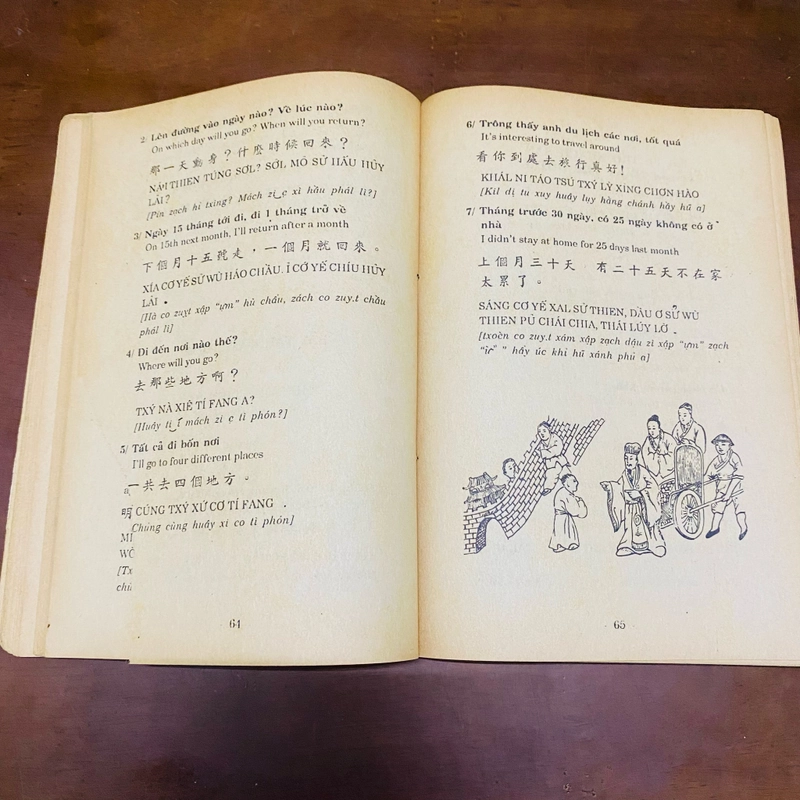 2/ Lên đường vào ngày nào? Về lúc nào?
On which day will you go? When will you return?
那一天動身？什麼時候回來？
NÁ I THIEN TÚNG SƠL? SỚL MÓ SỬ HẤU HỦY
LÀI?
[Pín zạch hỉ txing? Mách zi ẹ xì hầu phál li?]
3/ Ngày 15 tháng tới đi, đi 1 tháng trở về
On 15th next month, I'll return after a month
下個月十五號走，一個月就回來。
XÍA CƠ YẾ SỨ WÙ HÁO CHẦU. Ỉ CỚ YẾ CHÍU HỦY
LÀI .
[Hà co zuyt xập "ựm" hù chẩu, zách co zuy.t chầu
phál li]
4/ Đi đến nơi nào thế?
Where will you go?
去那些地方啊？
TXÝ NÀ XIÊ TÍ FANG A?
[Huây mách zi ẹ tì phón?]
5/ Tất cả đi bốn nơi
I'll go to four different places
一共去四個地方。
明 CÚNG TXÝ XỨ CƠ TÍ FANG .
[Chúng cùng huầy xi co ti phón]
MÍ
WÒ
[Tx
chù
64
6/ Trông thấy anh du lịch các nơi, tốt quá
It's interesting to travel around
看你到處去旅行真好！
KHÁL NI TÁO TSÚ TXÝ LỲ XING CHƠN HÀO
[Kil dị tu xuy huầy luy hằng chánh hầy hũ a]
7/ Tháng trước 30 ngày, có 25 ngày không có ở
nhà
I didn't stay at home for 25 days last month
上個月三十天 有二十五天不在家
太累了。
SÁNG CƠ YẾ XAL SỬ THIEN, DẦU Ơ SỬ WÙ
THIEN PÚ CHÁI CHIA, THÁI LÚY LỜ .
[txoèn co zuy.t xám xập zạch dậu zì xập "ựm" zạch
hầy úc khi hũ xánh phủ a]
65